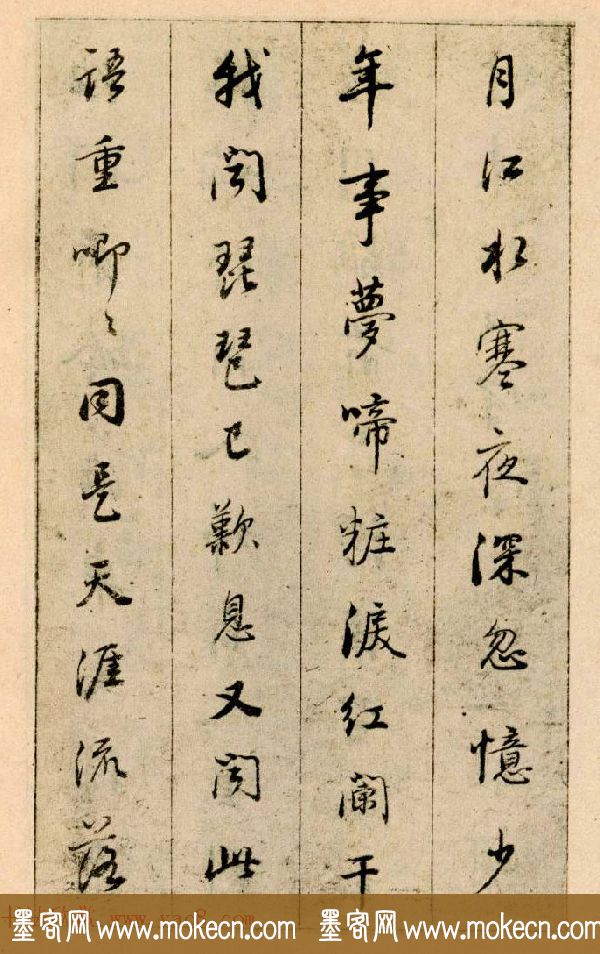 月江水寒夜深忽憶少
年事夢啼粧淚紅闌干
我聞琵琶已歎息又聞此
語重唧〻同是天涯流落
墨客网 www.mokecn.com 墨客网 www.mokecn.com